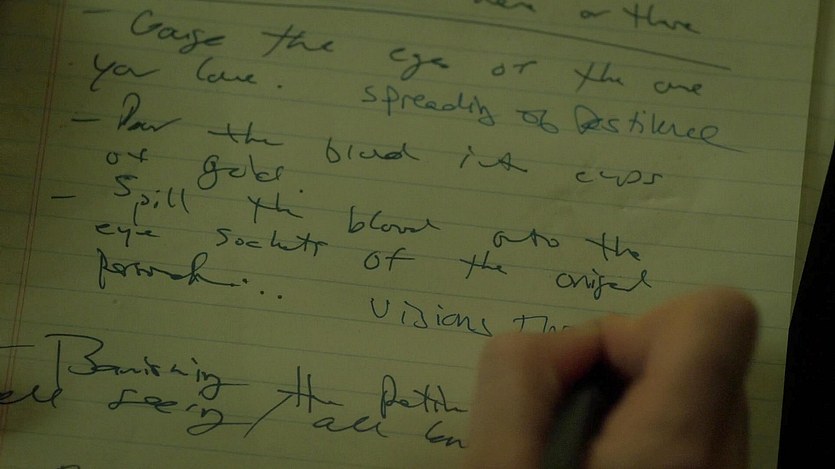 or three
- Gouge the eyes of the one
you love. spreading of Pestilence
- Pour the blood into cups
of gold.
- Spill the blood onto the
eye sockets of the original
... visions
- Banishing the
all seeing / all